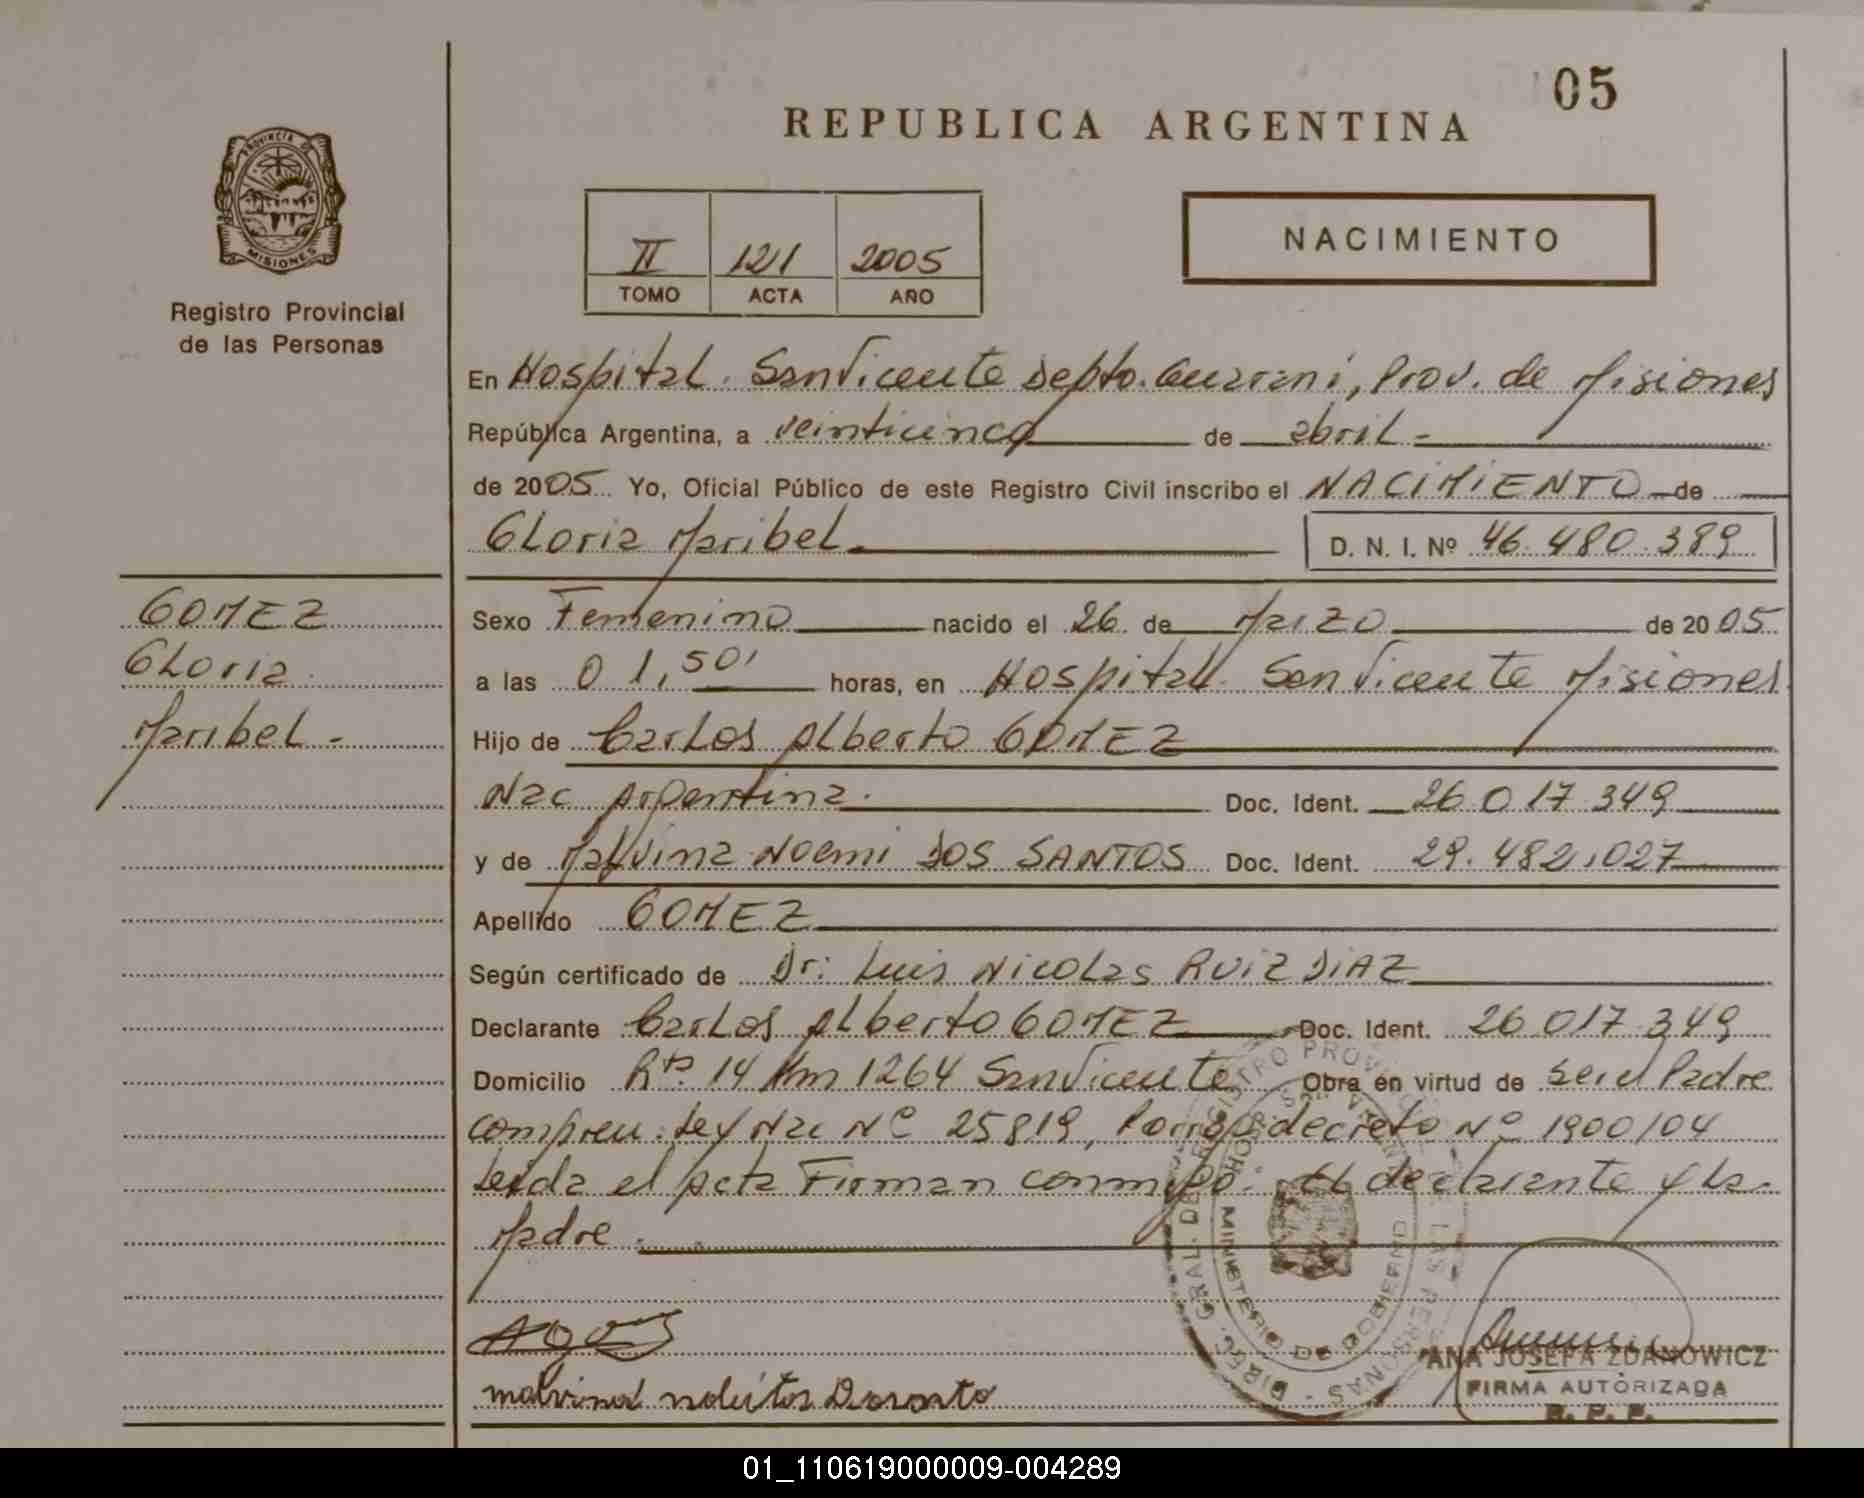 05
REPUBLICA ARGENTINA
PROVINCIA DE
MISIONES
Registro Provincial
de las Personas
II 121 2005
TOMO ACTA AÑO
NACIMIENTO
En Hospital San Vicente Depto. Guarani, Prov. de Misiones
República Argentina, a veinticinco de abril -
de 2005 Yo, Oficial Público de este Registro Civil inscribo el NACIMIENTO de
Gloria Maribel
D. N. I. Nº 46.480.389
GOMEZ
Gloria
Maribel -
Sexo Femenino nacido el 26 de Marzo de 2005
a las 01,50' horas, en Hospital San Vicente Misiones
Hijo de Carlos Alberto GOMEZ
Nac Argentina. Doc. Ident. 26 017 349
y de Malvina Noemi DOS SANTOS Doc. Ident. 29.482.027
Apellido GOMEZ
Según certificado de Dr: Luis Nicolas RUIZ DIAZ
Declarante Carlos Alberto GOMEZ Doc. Ident. 26 017 349
Domicilio Rta. 14 Km 1264 San Vicente Obra en virtud de ser el Padre
compren. Ley Nac Nº 25819, Prorrog decreto Nº 1900/04
Leida el acta Firman conmigo. El declarante y la
Madre.
malvina
DIREC. GRAL. DEL REGISTRO PROVINCIAL DE LAS PERSONAS
MINISTERIO DE GOBIERNO
ANA JOSEFA ZDANOWICZ
FIRMA AUTORIZADA
R. P. P.
01_110619000009-004289